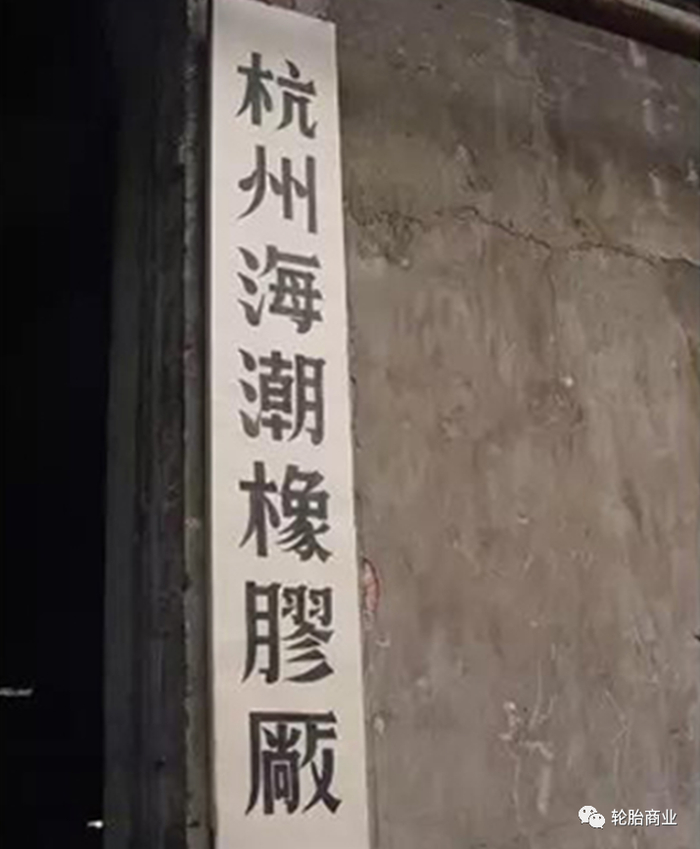 杭州海潮橡膠廠
轮胎商业